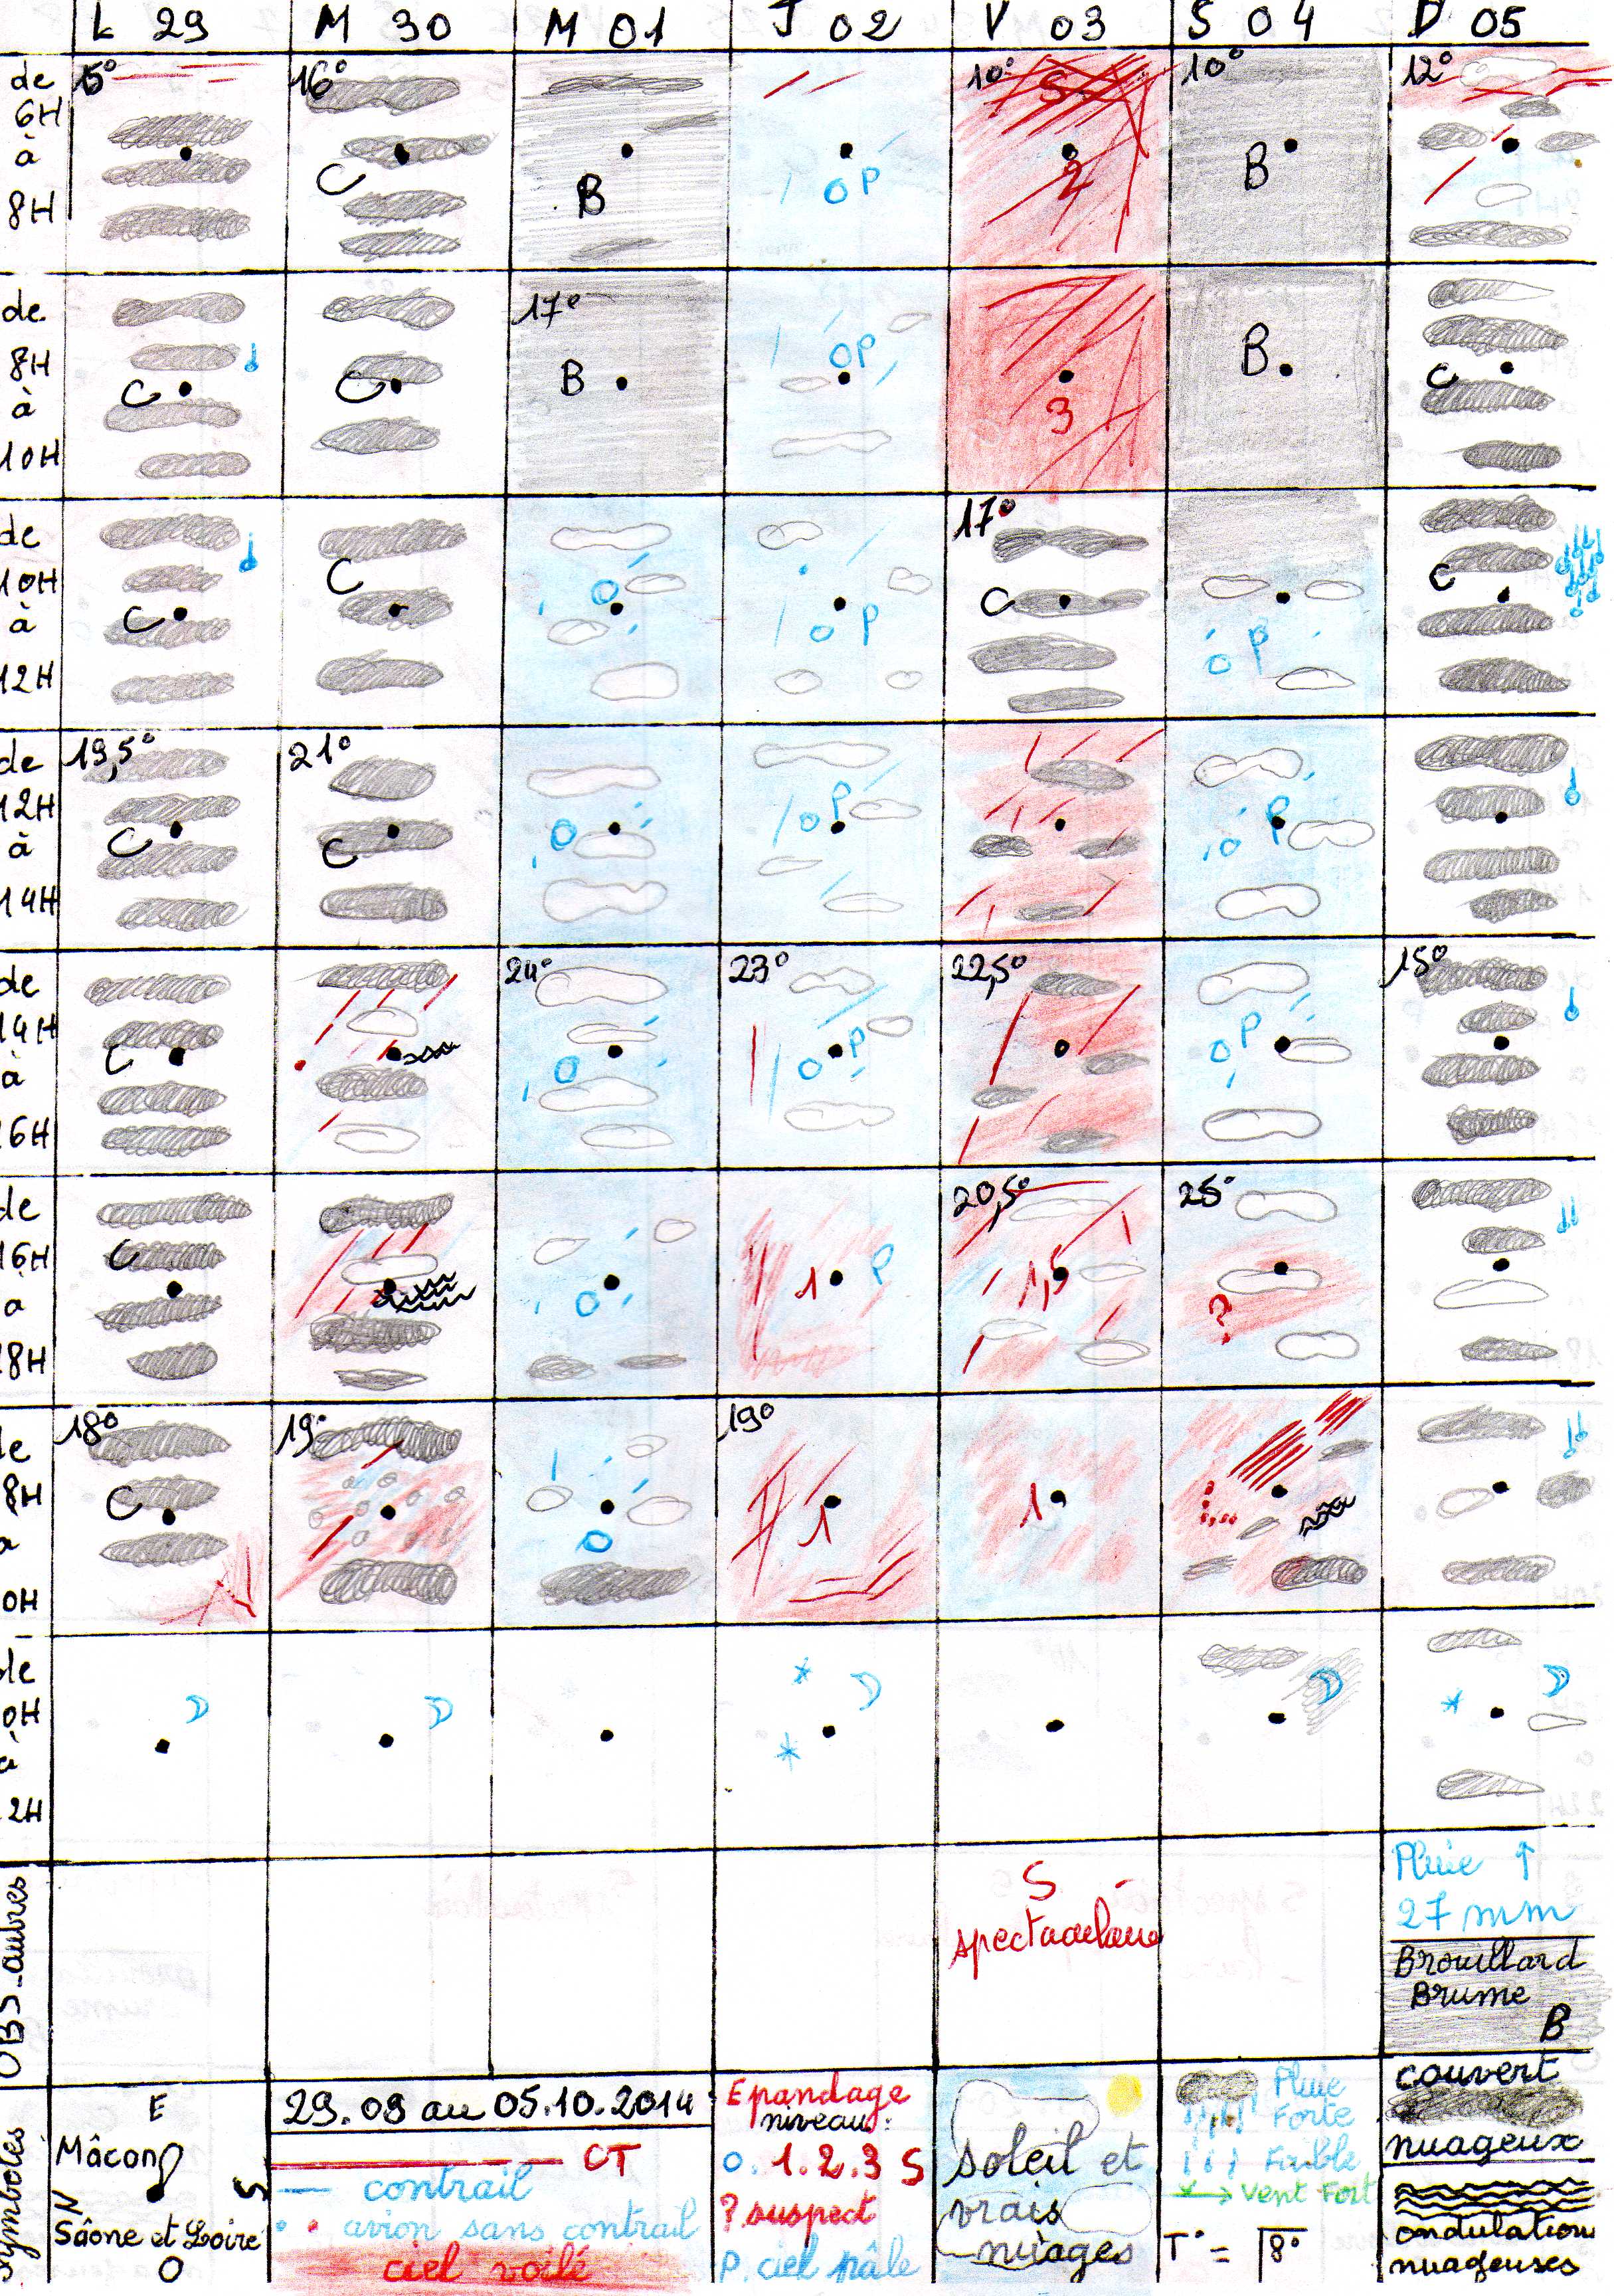 L 29 M 30 M 01 J 02 V 03 S 04 D 05
de 6H à 8H
16° 10° S 10° 12°
C B O P 2 B
de 8H à 10H
17°
C C B O P 3 B C
de 10H à 12H
17°
C C O O P C O P C
de 12H à 14H
19,5° 21°
C C O O P O P
de 14H
à
16H
24° 23° 22,5° 15°
C O O P O P
de
16H
a
18H
20,5° 25°
C O 1 P 1,5 ?
18° 19° 19°
8H
C O 1 1
0H
de
0H
2H
OBS autres
S
spectaculaire
Pluie ↑
27 mm
Brouillard
Brume
B
Symboles
E
Mâcon
N S
Saône et Loire
O
29.09 au 05.10.2014
CT
contrail
avion sans contrail
ciel voilé
Epandage
niveau:
0. 1. 2. 3 S
? suspect
P. ciel pâle
soleil et
vrais
nuages
Pluie
Forte
Faible
Vent Fort
T° = 8°
couvert
nuageux
ondulations
nuageuses